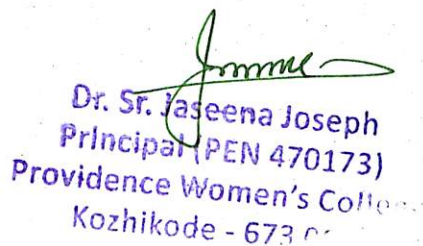 Dr. Sr. Jaseena Joseph
Principal (PEN 470173)
Providence Women's
Kozhikode - 673